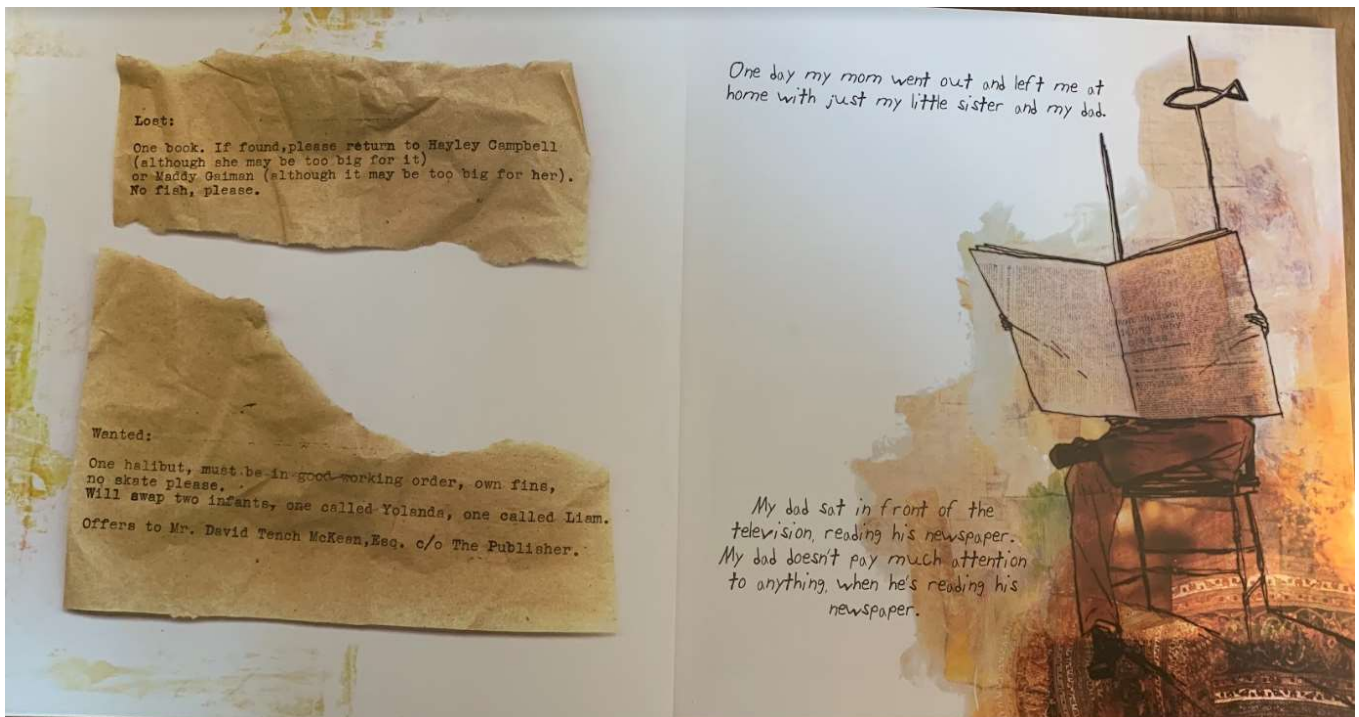 Lost:
One book. If found,please return to Hayley Campbell
(although she may be too big for it)
or Maddy Gaiman (although it may be too big for her).
No fish, please.
Wanted:
One halibut, must be in good working order, own fins,
no skate please.
Will swap two infants, one called Yolanda, one called Liam.
Offers to Mr. David Tench McKean,Esq. c/o The Publisher.
One day my mom went out and left me at
home with just my little sister and my dad.
My dad sat in front of the
television, reading his newspaper.
My dad doesn't pay much attention
to anything, when he's reading his
newspaper.